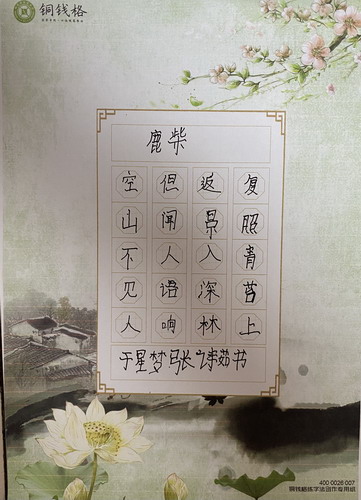 铜钱格
鹿柴
空山不见人
但闻人语响
返景入深林
复照青苔上
于星梦 书
400 0026 007
铜钱格练字法创作专用纸